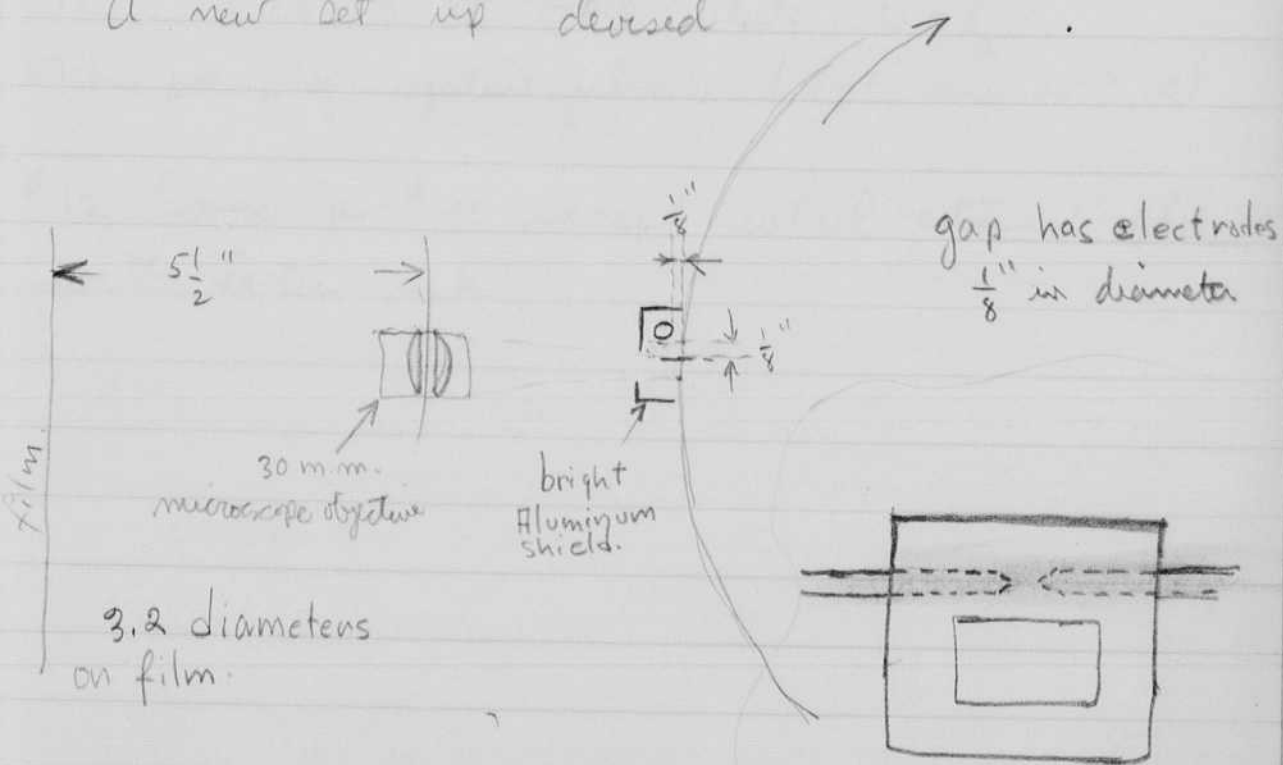 A new set up devised.
1/8"
gap has electrodes
1/8" in diameter
5 1/2"
1/8"
film.
30 m.m.
microscope objective
bright
Aluminum
shield.
3.2 diameters
on film.